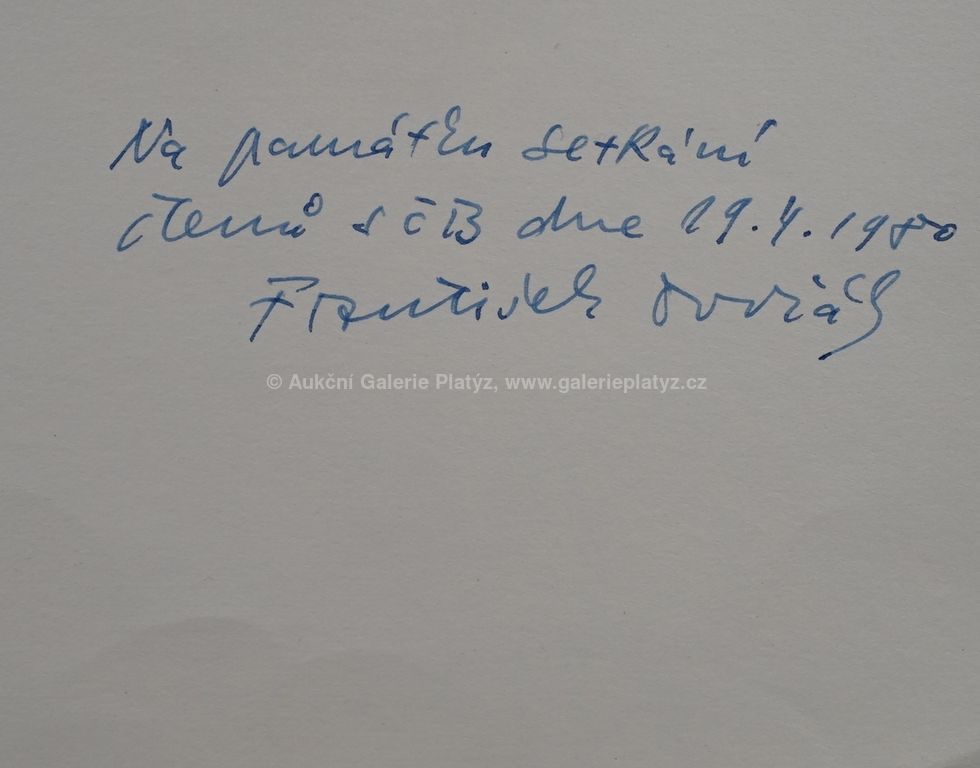 Na památku setkání
členů SČB dne 19.4.1980
František Dvořák
© Aukční Galerie Platýz, www.galerieplatyz.cz